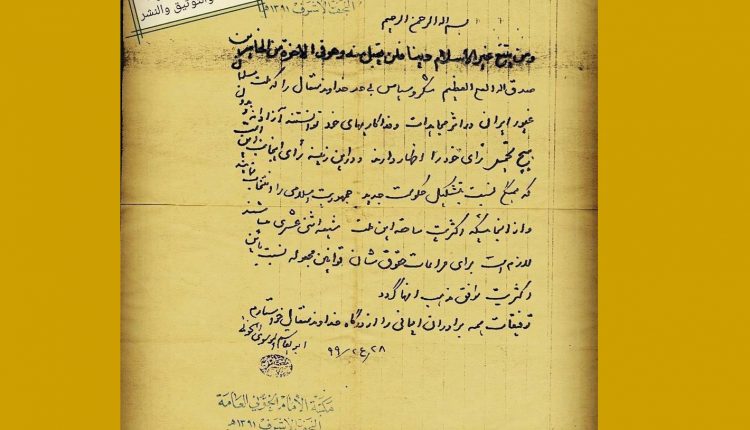 والتوثيق والنشر
النجف الاشرف ١٣٩١هـ
بسم الله الرحمن الرحیم
ومن یبتغ غیر الاسلام دینا فلن یقبل منه وهو فی الآخرة من الخاسرین
صدق الله العلی العظیم شکر و سپاس بی حد خداوند متعال را که ملت مسلمان
غیور ایران در اثر مجاهدات و فداکاریهای خود توانستند آزادانه و بدون
هیچ رأی خود را اظهار دارند و در این زمینه رأی ایشان این است
که همگی نسبت بتشکیل حکومت جدید جمهوریت اسلامی را انتخاب نمایند
و از آنجائیکه اکثریت ساحقه این ملت شیعه اثنی عشری میباشند
لازم است برای مراعات حقوق شان قوانین مجعوله نسبت باین
اکثریت موافق مذهب آنها گردد
توفیقات همه برادران ایمانی را از درگاه خداوند متعال خواستارم
ابوالقاسم الموسوی الخوئی
۲۸ / ۲۴ / ۹۹
مكتبة الإمام الخوئي العامة
النجف الاشرف ١٣٩١هـ